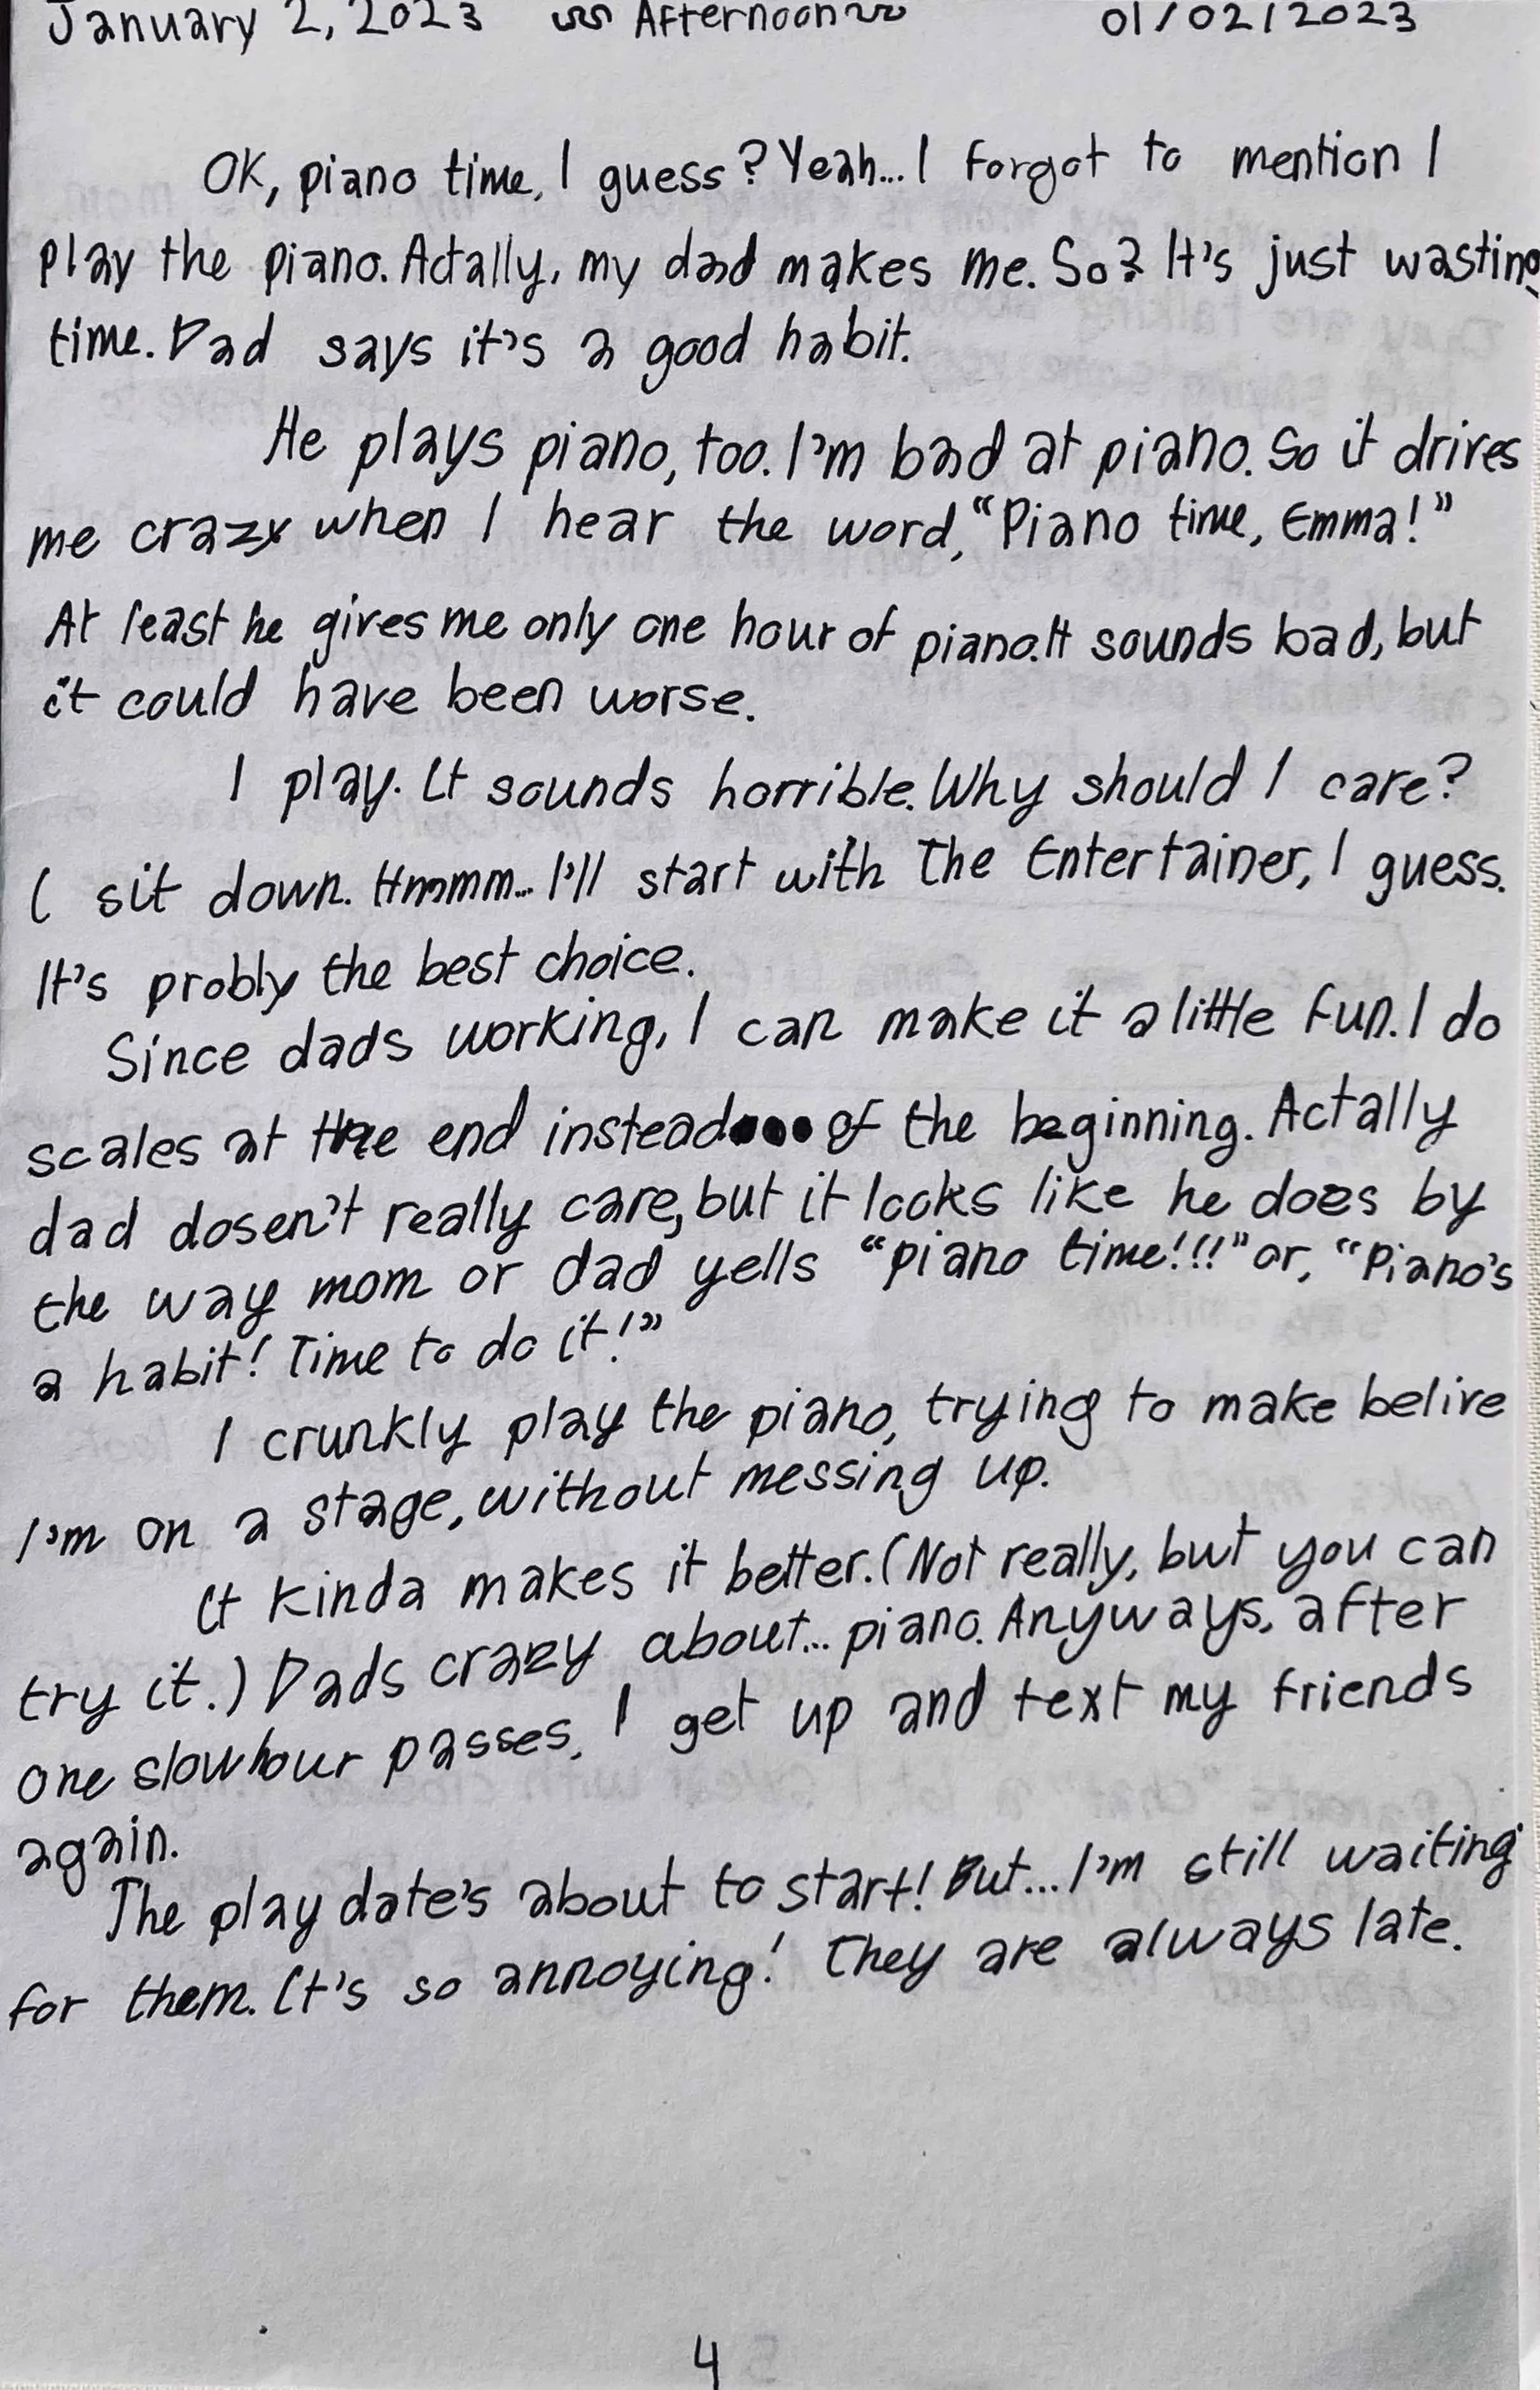 January 2, 2023 Afternoon 01/02/2023
OK, piano time, I guess? Yeah... I forgot to mention I
play the piano. Actally, my dad makes me. So? It's just wasting
time. Dad says it's a good habit.
He plays piano, too. I'm bad at piano. So it drives
me crazy when I hear the word, "Piano time, Emma!"
At least he gives me only one hour of piano. It sounds bad, but
it could have been worse.
I play. It sounds horrible. Why should I care?
I sit down. Hmmmm... I'll start with The Entertainer, I guess.
It's probly the best choice.
Since dads working, I can make it a little fun. I do
scales at the end instead of the beginning. Actally
dad dosen't really care, but it looks like he does by
the way mom or dad yells "piano time!!!" or, "Piano's
a habit! Time to do it!"
I crunkly play the piano, trying to make belive
I'm on a stage, without messing up.
It kinda makes it better. (Not really, but you can
try it.) Dads crazy about... piano. Anyways, after
one slow hour passes, I get up and text my friends
again.
The play date's about to start! But... I'm still waiting
for them. It's so annoying! They are always late.
4